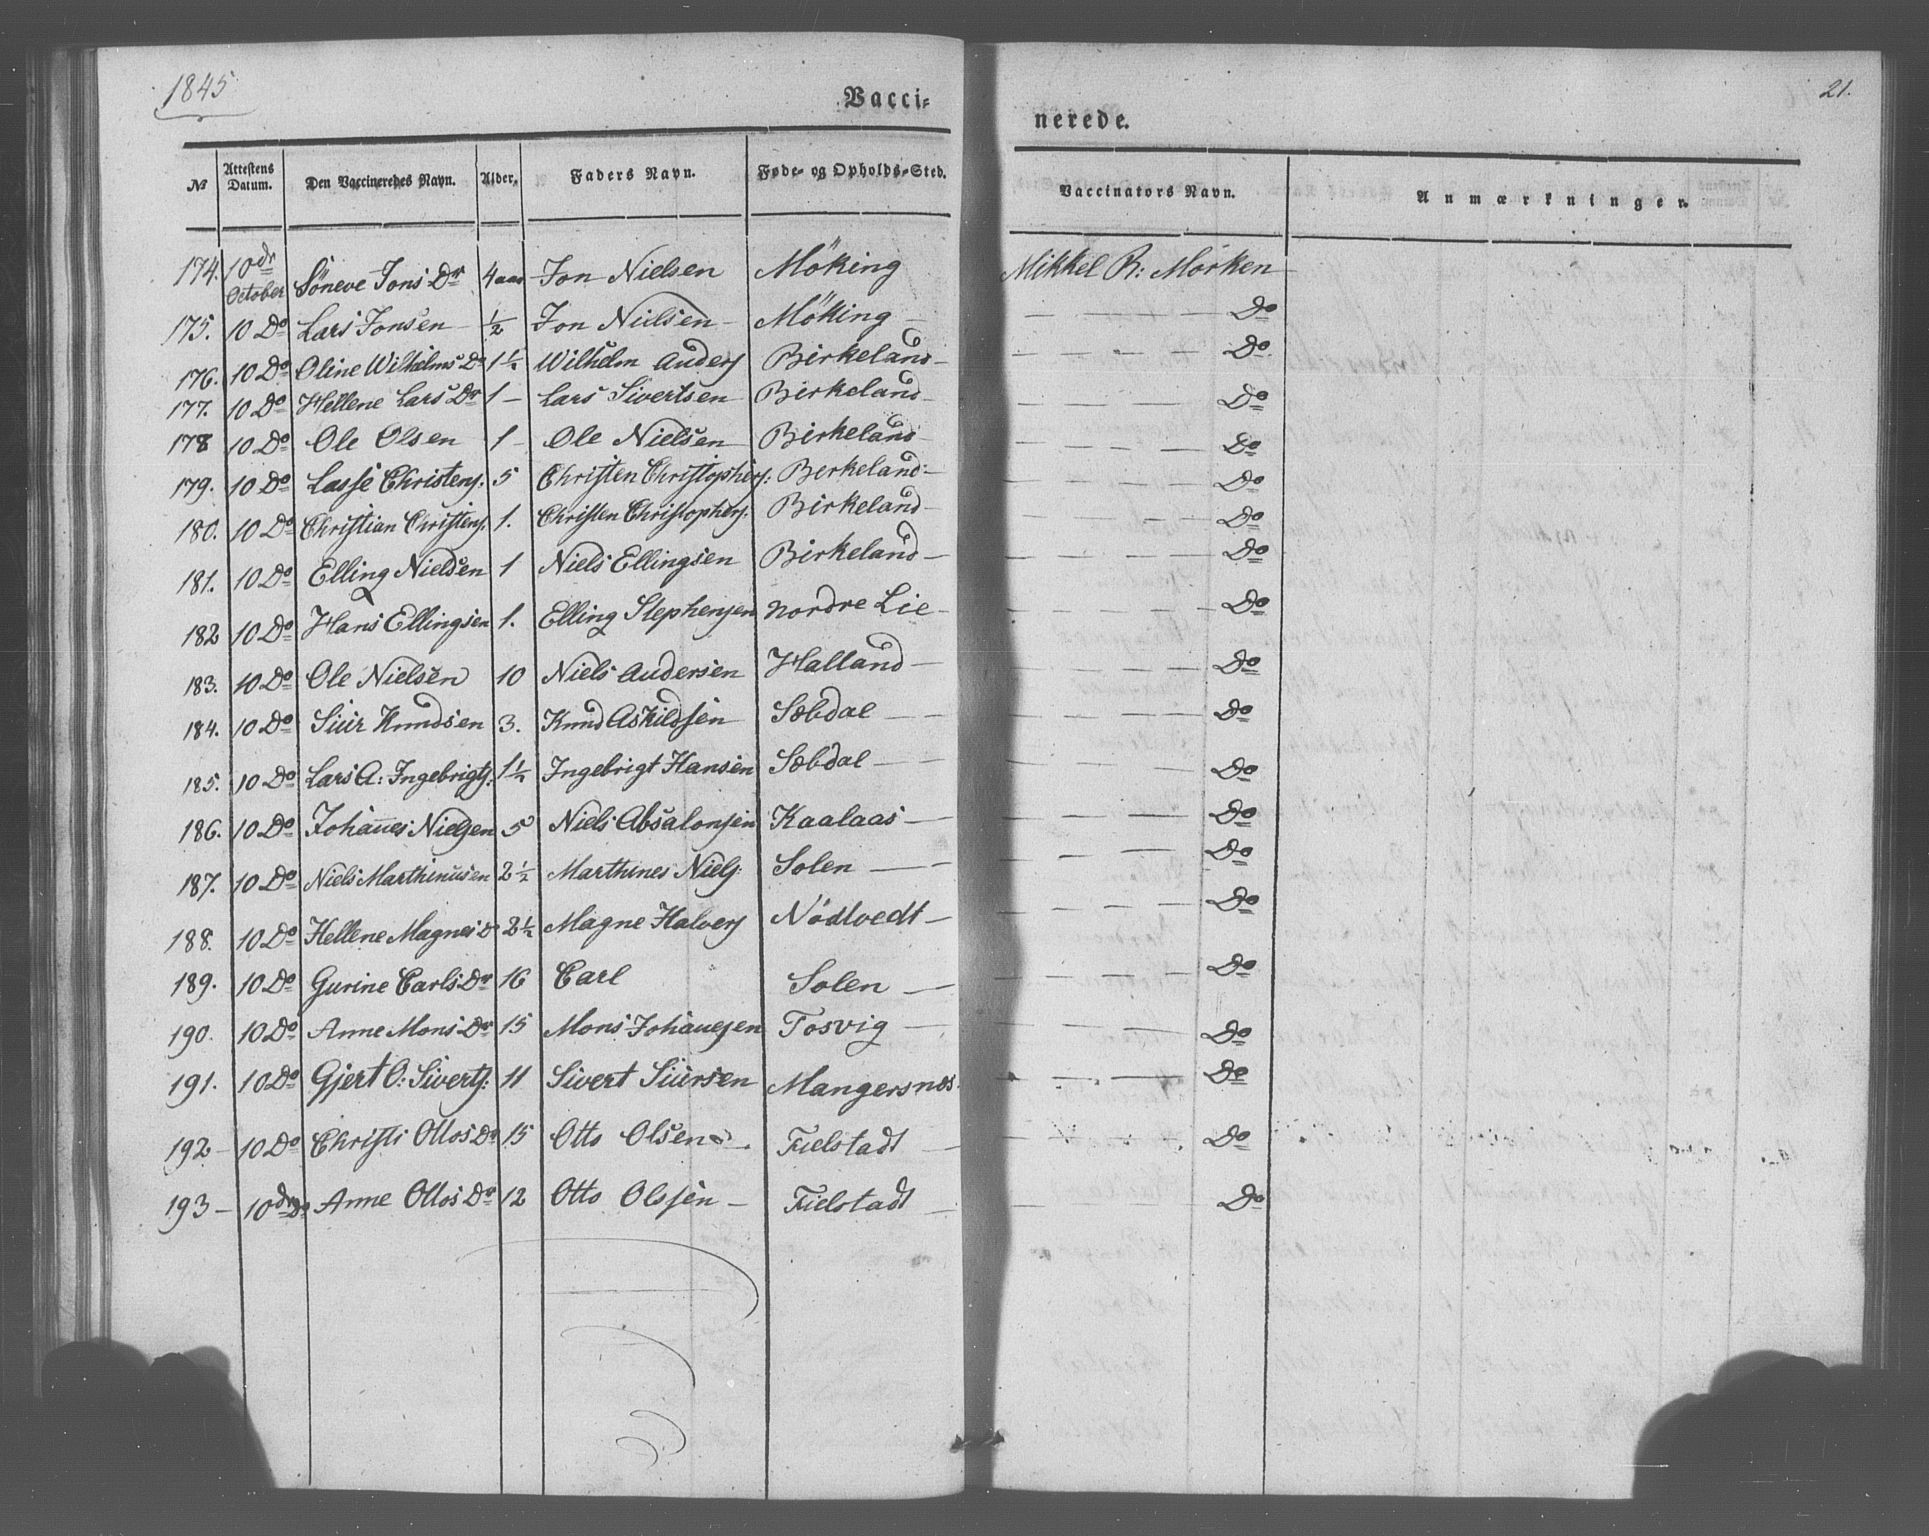 1845
Vacci-
nerede.
21.
№ Attestens Datum. Den Vaccineredes Navn. Alder. Faders Navn. Føde- og Opholds-Sted. Vaccinators Navn. Anmærkninger.
174. 10dr October Söneve Jons Dr 4 aar Jon Nielsen Möking Mikkel R: Mörken
175. 10 Do Lars Jonsen 1/2 Jon Nielsen Möking — Do
176. 10 Do Oline Wilhelms Dr 1 1/2 Wilhelm Anders Birkeland — Do
177. 10 Do Hellene Lars Dr 1 — Lars Sivertsen Birkeland — Do
178 10 Do Ole Olsen 1 — Ole Nielsen Birkeland — Do
179. 10 Do Lasse Christens: 5 Christen Christophers: Berkeland — Do
180. 10 Do Christian Christens. 1. Christen Christophers. Birkeland — Do
181. 10 Do Elling Nielsen 1 Niels Ellingsen Birkeland — Do
182 10 Do Hans Ellingsen 1. Elling Stephensen Nordre Lie — Do
183. 10 Do Ole Nielsen 10 Niels Andersen Halland — Do
184. 10 Do Siur Knudsen 3. Knud Askildsen Sæbdal — Do
185. 10 Do Lars A: Ingebrigts: 1 1/2 Ingebrigt Hansen Sæbdal — Do
186. 10 Do Johannes Nielsen 5 Niels Absalonsen Kaalaas — Do
187. 10 Do Niels Marthinusen 2 1/2 Marthines Niels: Solen — Do
188. 10 Do Hellene Magnes D 2 1/2 Magne Halvers Nödtvedt — Do
189. 10 Do Gurine Carls Dr 16 Carl Solen — Do
190. 10 Do Anne Mons Dr 15 Mons Johannesen Tosvig — Do
191. 10 Do Gjert O: Siverts: 11 Sivert Siursen Mangersnæs. — Do
192 — 10 Do Christi Ottos Dr 15 Otto Olsen —. Fielstadt — Do
193 — 10dr Do Anne Ottos Dr 12 Otto Olssen — Fielstadt — Do